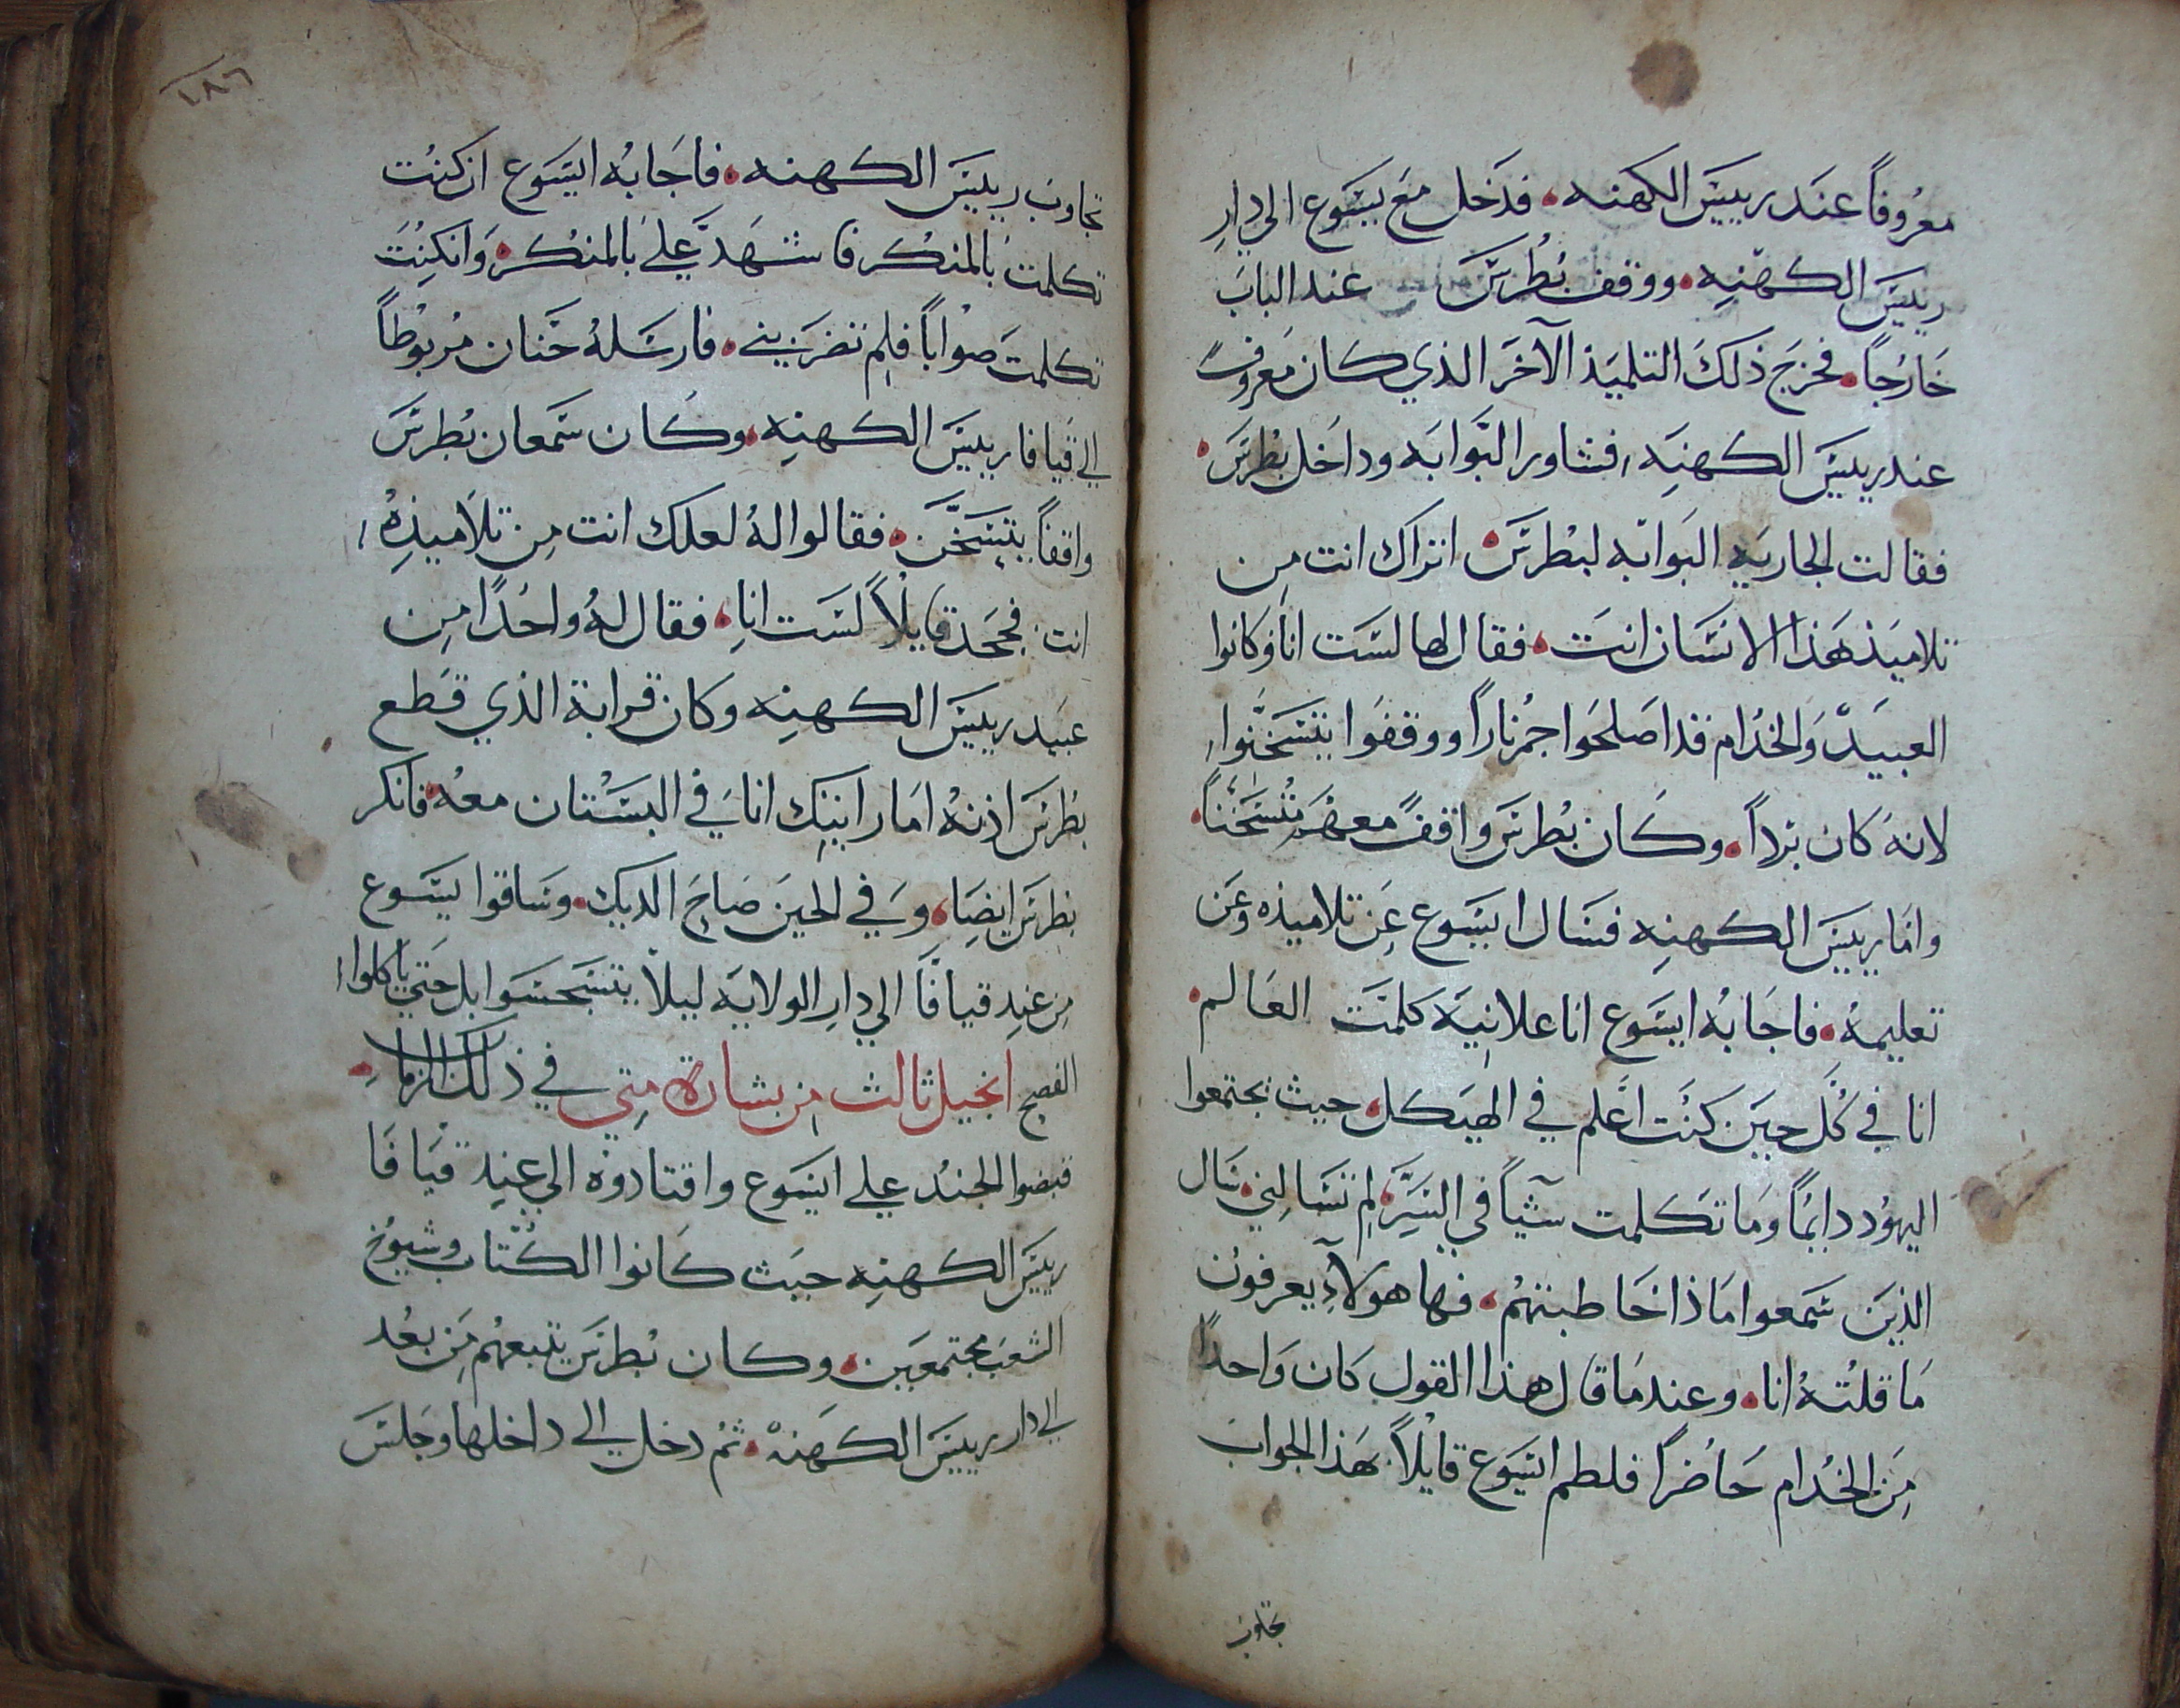 معروفاً عند رييس الكهنه. فدخل مع يسوع الي دار
رييس الكهنه. ووقف بطرس عند الباب
خارجاً. فخرج ذلك التلميذ الآخر الذي كان معروفً
عند رييس الكهنه، فشاور البوابه وداخل بطرس.
فقالت الجاريه البوابه لبطرس. اتراك انت من
تلاميذ هذا الانسان انت. فقال لها لست انا وكانوا
العبيد والخدام قد اصلحوا جمر ناراً ووقفوا يتسخنوا،
لانه كان برداً. وكان بطرس واقفً معهم متسخناً.
واما رييس الكهنه فسال ايسوع عن تلاميذه وعن
تعليمه. فاجابه ايسوع انا علانيه كلمت العالم.
انا في كل حين كنت اعلم في الهيكل. حيث يجتمعوا
اليهود دايماً وما تكلمت شياً في السر. لم تسالني. سال
الذين سمعوا ماذا خاطبتهم. فها هولاءِ يعرفون
ما قلته انا. وعندما قال هذا القول كان واحداً
من الخدام حاضراً فلطم ايسوع قايلاً. هذا الجواب
تجاوب
١٨٦
تجاوب رييس الكهنه. فاجابه ايسوع ان كنت
تكلمت بالمنكر فاشهد علي بالمنكر. وانكنت
تكلمت صواباً فلم تضربني. فارسله حنان مربوطاً
الي قيافا رييس الكهنه. وكان سمعان بطرس
واقفاً يتسخن. فقالوا له لعلك انت من تلاميذه،
انت. فجحد قايلاً لست انا. فقال له واحداً من
عبيد رييس الكهنه وكان قرابة الذي قطع
بطرس اذنه اما رايتك انا في البستان معه. فانكر
بطرس ايضا. وفي الحين صاح الديك. وساقوا يسوع
من عند قيافا الي دار الولايه ليلا يتنجسوا بل حتي ياكلوا،
الفصح انجيل ثالث من بشارة متي في ذلك الزمان.
قبضوا الجند علي ايسوع واقتادوه الي عند قيافا
رييس الكهنه حيث كانوا الكتاب وشيوخ
الشعب مجتمعين. وكان بطرس يتبعهم من بعد
الي دار رييس الكهنه. ثم دخل الي داخلها وجلس